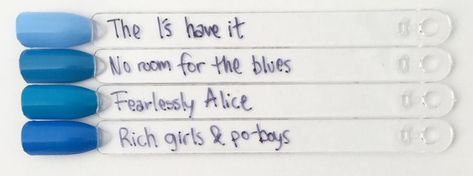 The 1's have it
No room for the blues
Fearlessly Alice
Rich girls & po-boys